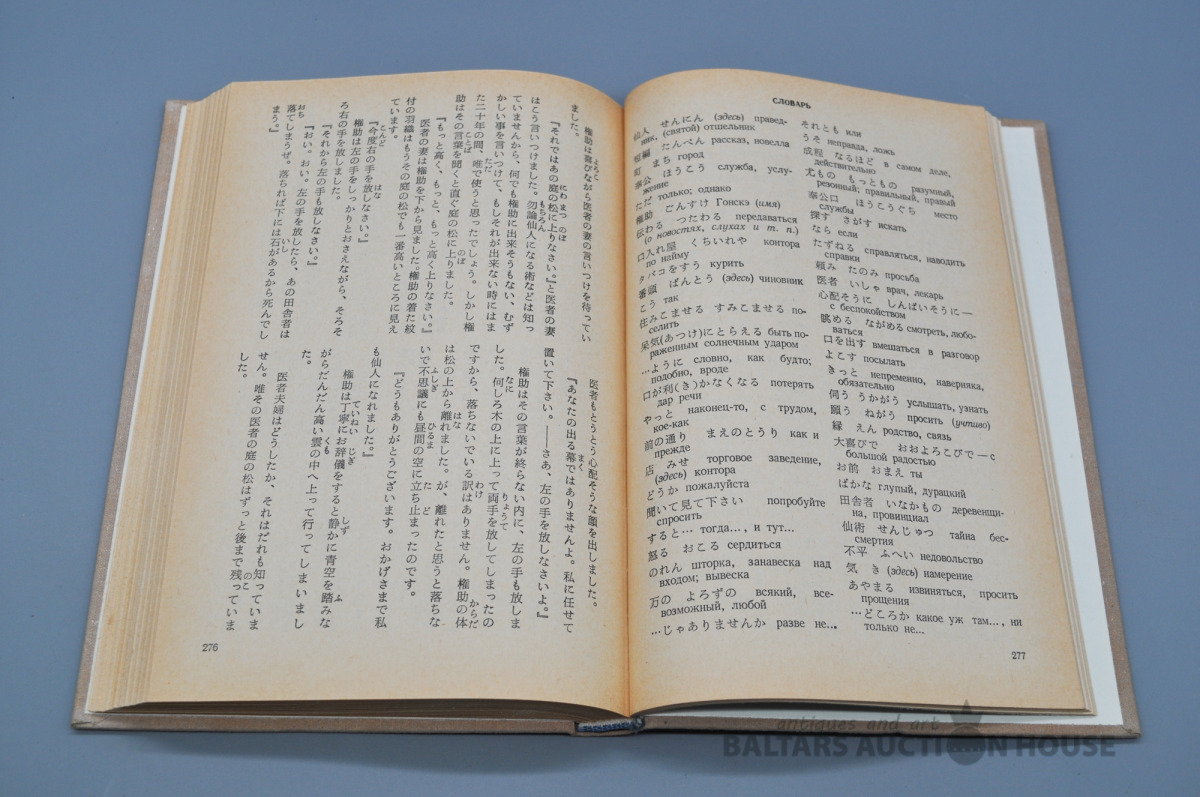 権助は喜びながら医者の妻の言いつけを待ってい
ました。
『それではあの庭の松に上りなさい。』と医者の妻
はこう言いつけました。勿論仙人になる術などは知っ
ていませんから、何でも権助に出来そうもない、むず
かしい事を言いつけて、もしそれが出来ない時にはま
た二十年の間、唯で使うと思ったでしょう。しかし権
助はその言葉を聞くと直ぐ庭の松に上りました。
『もっと高く、もっと、もっと高く上りなさい。』
医者の妻は権助を下から見ました。権助の着た紋
付の羽織はもうその庭の松でも一番高いところに見え
ています。
『今度右の手を放しなさい。』
権助は左の手をしっかりとおさえながら、そろそ
ろ右の手を放しました。
『それから左の手も放しなさい。』
『おい。おい。左の手を放したら、あの田舎者は
落てしまうぜ。落ちれば下には石があるから死んでし
まう。』
医者もとうとう心配そうな顔を出しました。
『あなたの出る幕ではありませんよ。私に任せて
置いて下さい。——さあ、左の手を放しなさいよ。』
権助はその言葉が終らない内に、左の手も放しま
した。何しろ木の上に上って両手を放してしまったの
ですから、落ちないでいる訳はありません。権助の体
は松の上から離れました。が、離れたと思うと落ちな
いで不思議にも昼間の空に立ち止まったのです。
『どうもありがとうございます。おかげさまで私
も仙人になれました。』
権助は丁寧にお辞儀をすると静かに青空を踏みな
がらだんだん高い雲の中へ上って行ってしまいまし
た。
医者夫婦はどうしたか、それはだれも知っていま
せん。唯その医者の庭の松はずっと後まで残っていま
した。
276
СЛОВАРЬ
仙人 せんにん (здесь) правед-
ник, (святой) отшельник
短編 たんぺん рассказ, новелла
町 まち город
奉公 ほうこう служба, услу-
жение
ただ только; однако
権助 ごんすけ Гонскэ (имя)
伝わる つたわる передаваться
(о новостях, слухах и т. п.)
口入れ屋 くちいれや контора
по найму
タバコをすう курить
番頭 ばんとう (здесь) чиновник
こう так
住みこませる すみこませる по-
селить
呆気(あつけ)にとらえる быть по-
раженным солнечным ударом
…ように словно, как будто;
подобно, вроде
口が利(き)かなくなる потерять
дар речи
やっと наконец-то, с трудом,
кое-как
前の通り まえのとうり как и
прежде
店 みせ торговое заведение,
(здесь) контора
どうか пожалуйста
聞いて見て下さい попробуйте
спросить
すると… тогда..., и тут...
怒る おこる сердиться
のれん шторка, занавеска над
входом; вывеска
万の よろずの всякий, все-
возможный, любой
…じゃありませんか разве не...
それとも или
うそ неправда, ложь
成程 なるほど в самом деле,
действительно
尤もの もっともの разумный,
резонный; правильный, правый
奉公口 ほうこうぐち место
службы
探す さがす искать
なら если
たずねる справляться, наводить
справки
頼み たのみ просьба
医者 いしゃ врач, лекарь
心配そうに しんぱいそうに —
с беспокойством
眺める ながめる смотреть, любо-
ваться
口を出す вмешаться в разговор
よこす посылать
きっと непременно, наверняка,
обязательно
伺う うかがう услышать, узнать
願う ねがう просить (учтиво)
縁 えん родство, связь
大喜びで おおよろこびで — с
большой радостью
お前 おまえ ты
ばかな глупый, дурацкий
田舎者 いなかもの деревенщи-
на, провинциал
仙術 せんじゅつ тайна бес-
смертия
不平 ふへい недовольство
気 き (здесь) намерение
あやまる извиняться, просить
прощения
…どころか какое уж там..., ни
только не...
277
antiques and art
BALTARS AUCTION HOUSE